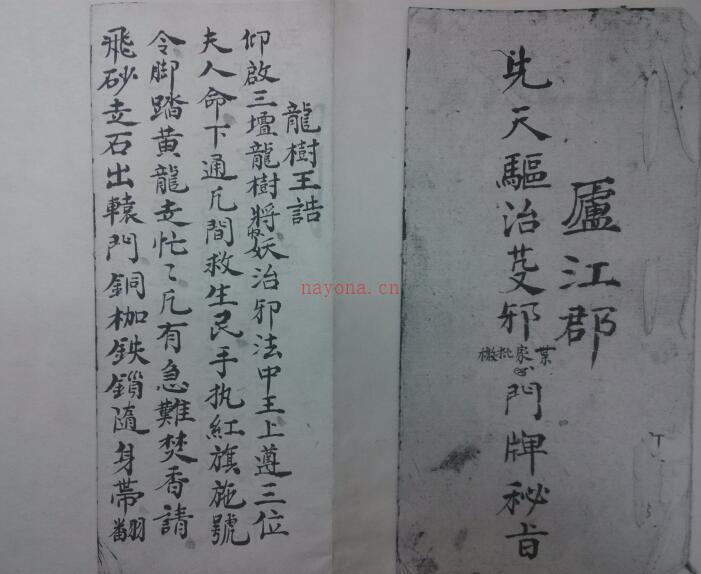 廬江郡
先天驅治邪門牌秘旨
家批檄
龍樹王誥
仰啟三壇龍樹將妖治邪法中王上遵三位
夫人命下通凢間救生民手执紅旗施號
令脚踏黄龍走忙〻凢有急難焚香請
飛砂走石出轅門銅枷鉄鎖隨身帶翻
nayona.cn